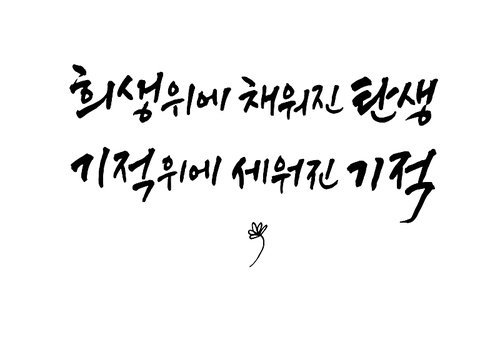 희생위에 채워진 탄생
기적위에 세워진 기적